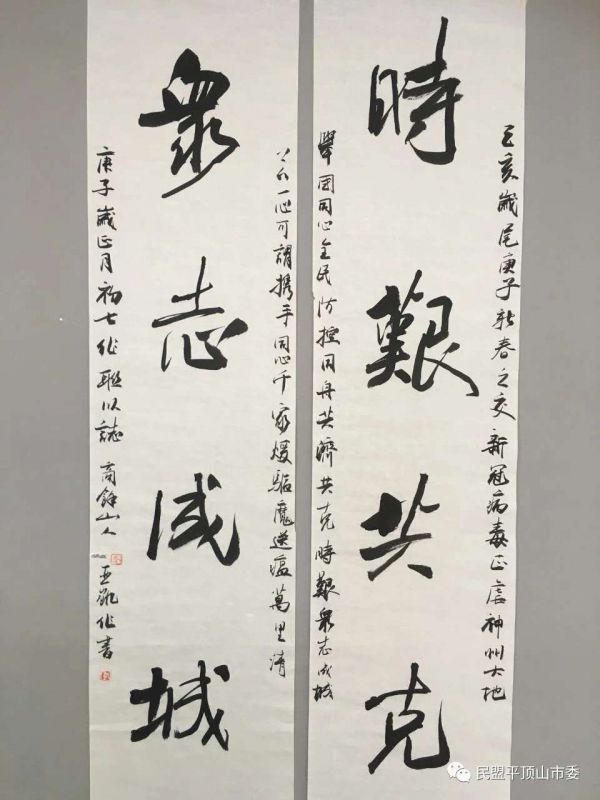 己亥歲尾庚子新春之交新冠病毒正虐神州大地
時艱共克
舉国同心全民防控同舟共濟共克時艱衆志成城
上下一心可謂携手同心千家煖驅魔送瘟萬里清
衆志成城
庚子歲正月初七作聯以誌 商餘山人
亚凱作書
民盟平顶山市委